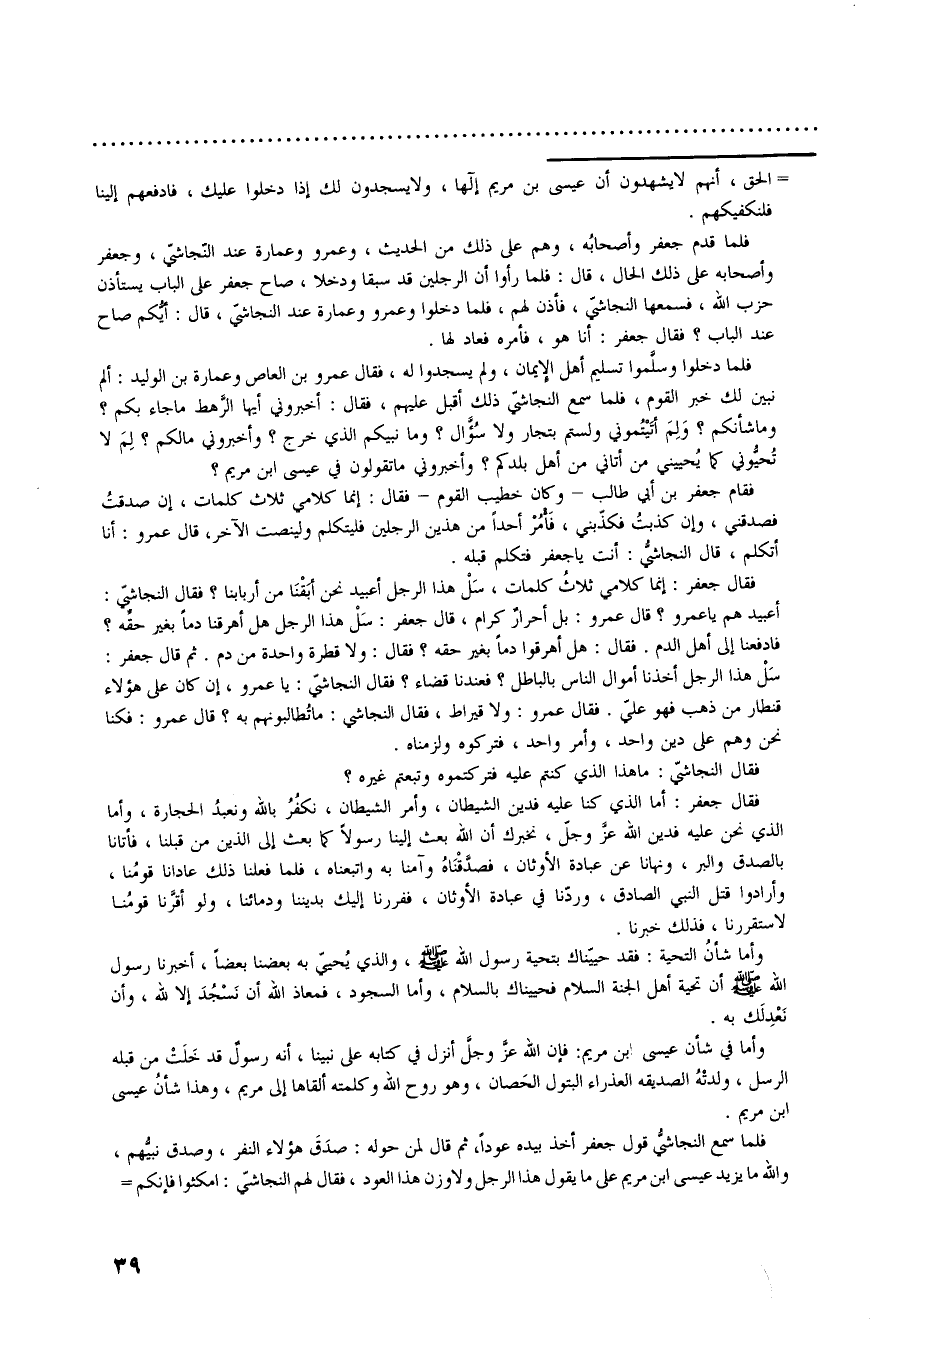 = الحق ، أنهم لايشهدون أن عيسى بن مريم إلٓها ، ولايسجدون لك إذا دخلوا عليك ، فادفعهم إلينا
فلنكفيكهم .
فلما قدم جعفر وأصحابُه ، وهم على ذلك من الحديث ، وعمرو وعمارة عند النّجاشيّ ، وجعفر
وأصحابه على ذلك الحال ، قال : فلما رأوا أن الرجلين قد سبقا ودخلا ، صاح جعفر على الباب يستأذن
حزب الله ، فسمعها النجاشيّ ، فأذن لهم ، فلما دخلوا وعمرو وعمارة عند النجاشيّ ، قال : أيُّكم صاح
عند الباب ؟ فقال جعفر : أنا هو ، فأمره فعاد لها .
فلما دخلوا وسلَّموا تسليم أهل الإيمان ، ولم يسجدوا له ، فقال عمرو بن العاص وعمارة بن الوليد : ألم
نبين لك خبر القوم ، فلما سمع النجاشيّ ذلك أقبل عليهم ، فقال : أخبروني أيها الرَّهط ماجاء بكم ؟
وماشأنكم ؟ وَلِمَ أتَيْتُموني ولستم بتجار ولا سُؤَّال ؟ وما نبيكم الذي خرج ؟ وأخبروني مالكم ؟ لِمَ لا
تُحيُّوني كما يُحييني من أتاني من أهل بلدكم ؟ وأخبروني ماتقولون في عيسى ابن مريم ؟
فقام جعفر بن أبي طالب – وكان خطيب القوم – فقال : إنما كلامي ثلاث كلمات ، إن صدقتُ
فصدقني ، وإن كذبتُ فكذّبني ، فَأْمُرْ أحداً من هذين الرجلين فليتكلم ولينصت الآخر، قال عمرو : أنا
أتكلم ، قال النجاشيُّ : أنت ياجعفر فتكلم قبله .
فقال جعفر : إنما كلامي ثلاثُ كلمات ، سَلْ هذا الرجل أعبيد نحن أبَقْنَا من أربابنا ؟ فقال النجاشيّ :
أعبيد هم ياعمرو ؟ قال عمرو : بل أحرارٌ كرام ، قال جعفر : سَلْ هذا الرجل هل أهرقنا دماً بغير حقِّه ؟
فادفعنا إلى أهل الدم . فقال : هل أهرقوا دماً بغير حقه ؟ فقال : ولا قطرة واحدة من دم . ثم قال جعفر :
سَلْ هذا الرجل أخذنا أموال الناس بالباطل ؟ فعندنا قضاء ؟ فقال النجاشيّ : يا عمرو ، إن كان على هؤلاء
قنطار من ذهب فهو عليّ . فقال عمرو : ولا قيراط ، فقال النجاشي : ماتُطالبونهم به ؟ قال عمرو : فكنا
نحن وهم على دين واحد ، وأمر واحد ، فتركوه ولزمناه .
فقال النجاشيّ : ماهذا الذي كنتم عليه فتركتموه وتبعتم غيره ؟
فقال جعفر : أما الذي كنا عليه فدين الشيطان ، وأمر الشيطان ، نكفُرُ بالله ونعبدُ الحجارة ، وأما
الذي نحن عليه فدين الله عزَّ وجلّ ، نخبرك أن الله بعث إلينا رسولاً كما بعث إلى الذين من قبلنا ، فأتانا
بالصدق والبر ، ونهانا عن عبادة الأوثان ، فصدَّقْنَاهُ وآمنا به واتبعناه ، فلما فعلنا ذلك عادانا قومُنا ،
وأرادوا قتل النبي الصادق ، وردّنا في عبادة الأوثان ، ففررنا إليك بديننا ودمائنا ، ولو أقرَّنا قومُنا
لاستقررنا ، فذلك خبرنا .
وأما شأنُ التحية : فقد حييّناك بتحية رسول الله ﷺ ، والذي يُحييّ به بعضنا بعضاً ، أخبرنا رسول
الله ﷺ أن تحية أهل الجنة السلام فحييناك بالسلام ، وأما السجود ، فمعاذ الله أن نَسْجُدَ إلا لله ، وأن
نَعْدِلَك به .
وأما في شأن عيسى ابن مريم: فإن الله عزَّ وجلَّ أنزل في كتابه على نبينا ، أنه رسولٌ قد خَلَتْ من قبله
الرسل ، ولدتْهُ الصديقه العذراء البتول الحَصان ، وهو روح الله وكلمته ألقاها إلى مريم ، وهذا شأنُ عيسى
ابن مريم .
فلما سمع النجاشيُّ قول جعفر أخذ بيده عوداً، ثم قال لمن حوله : صدَقَ هؤلاء النفر ، وصدق نبيُّهم ،
والله ما يزيد عيسى ابن مريم على ما يقول هذا الرجل ولاوزن هذا العود ، فقال لهم النجاشيّ : امكثوا فإنكم =
٣٩